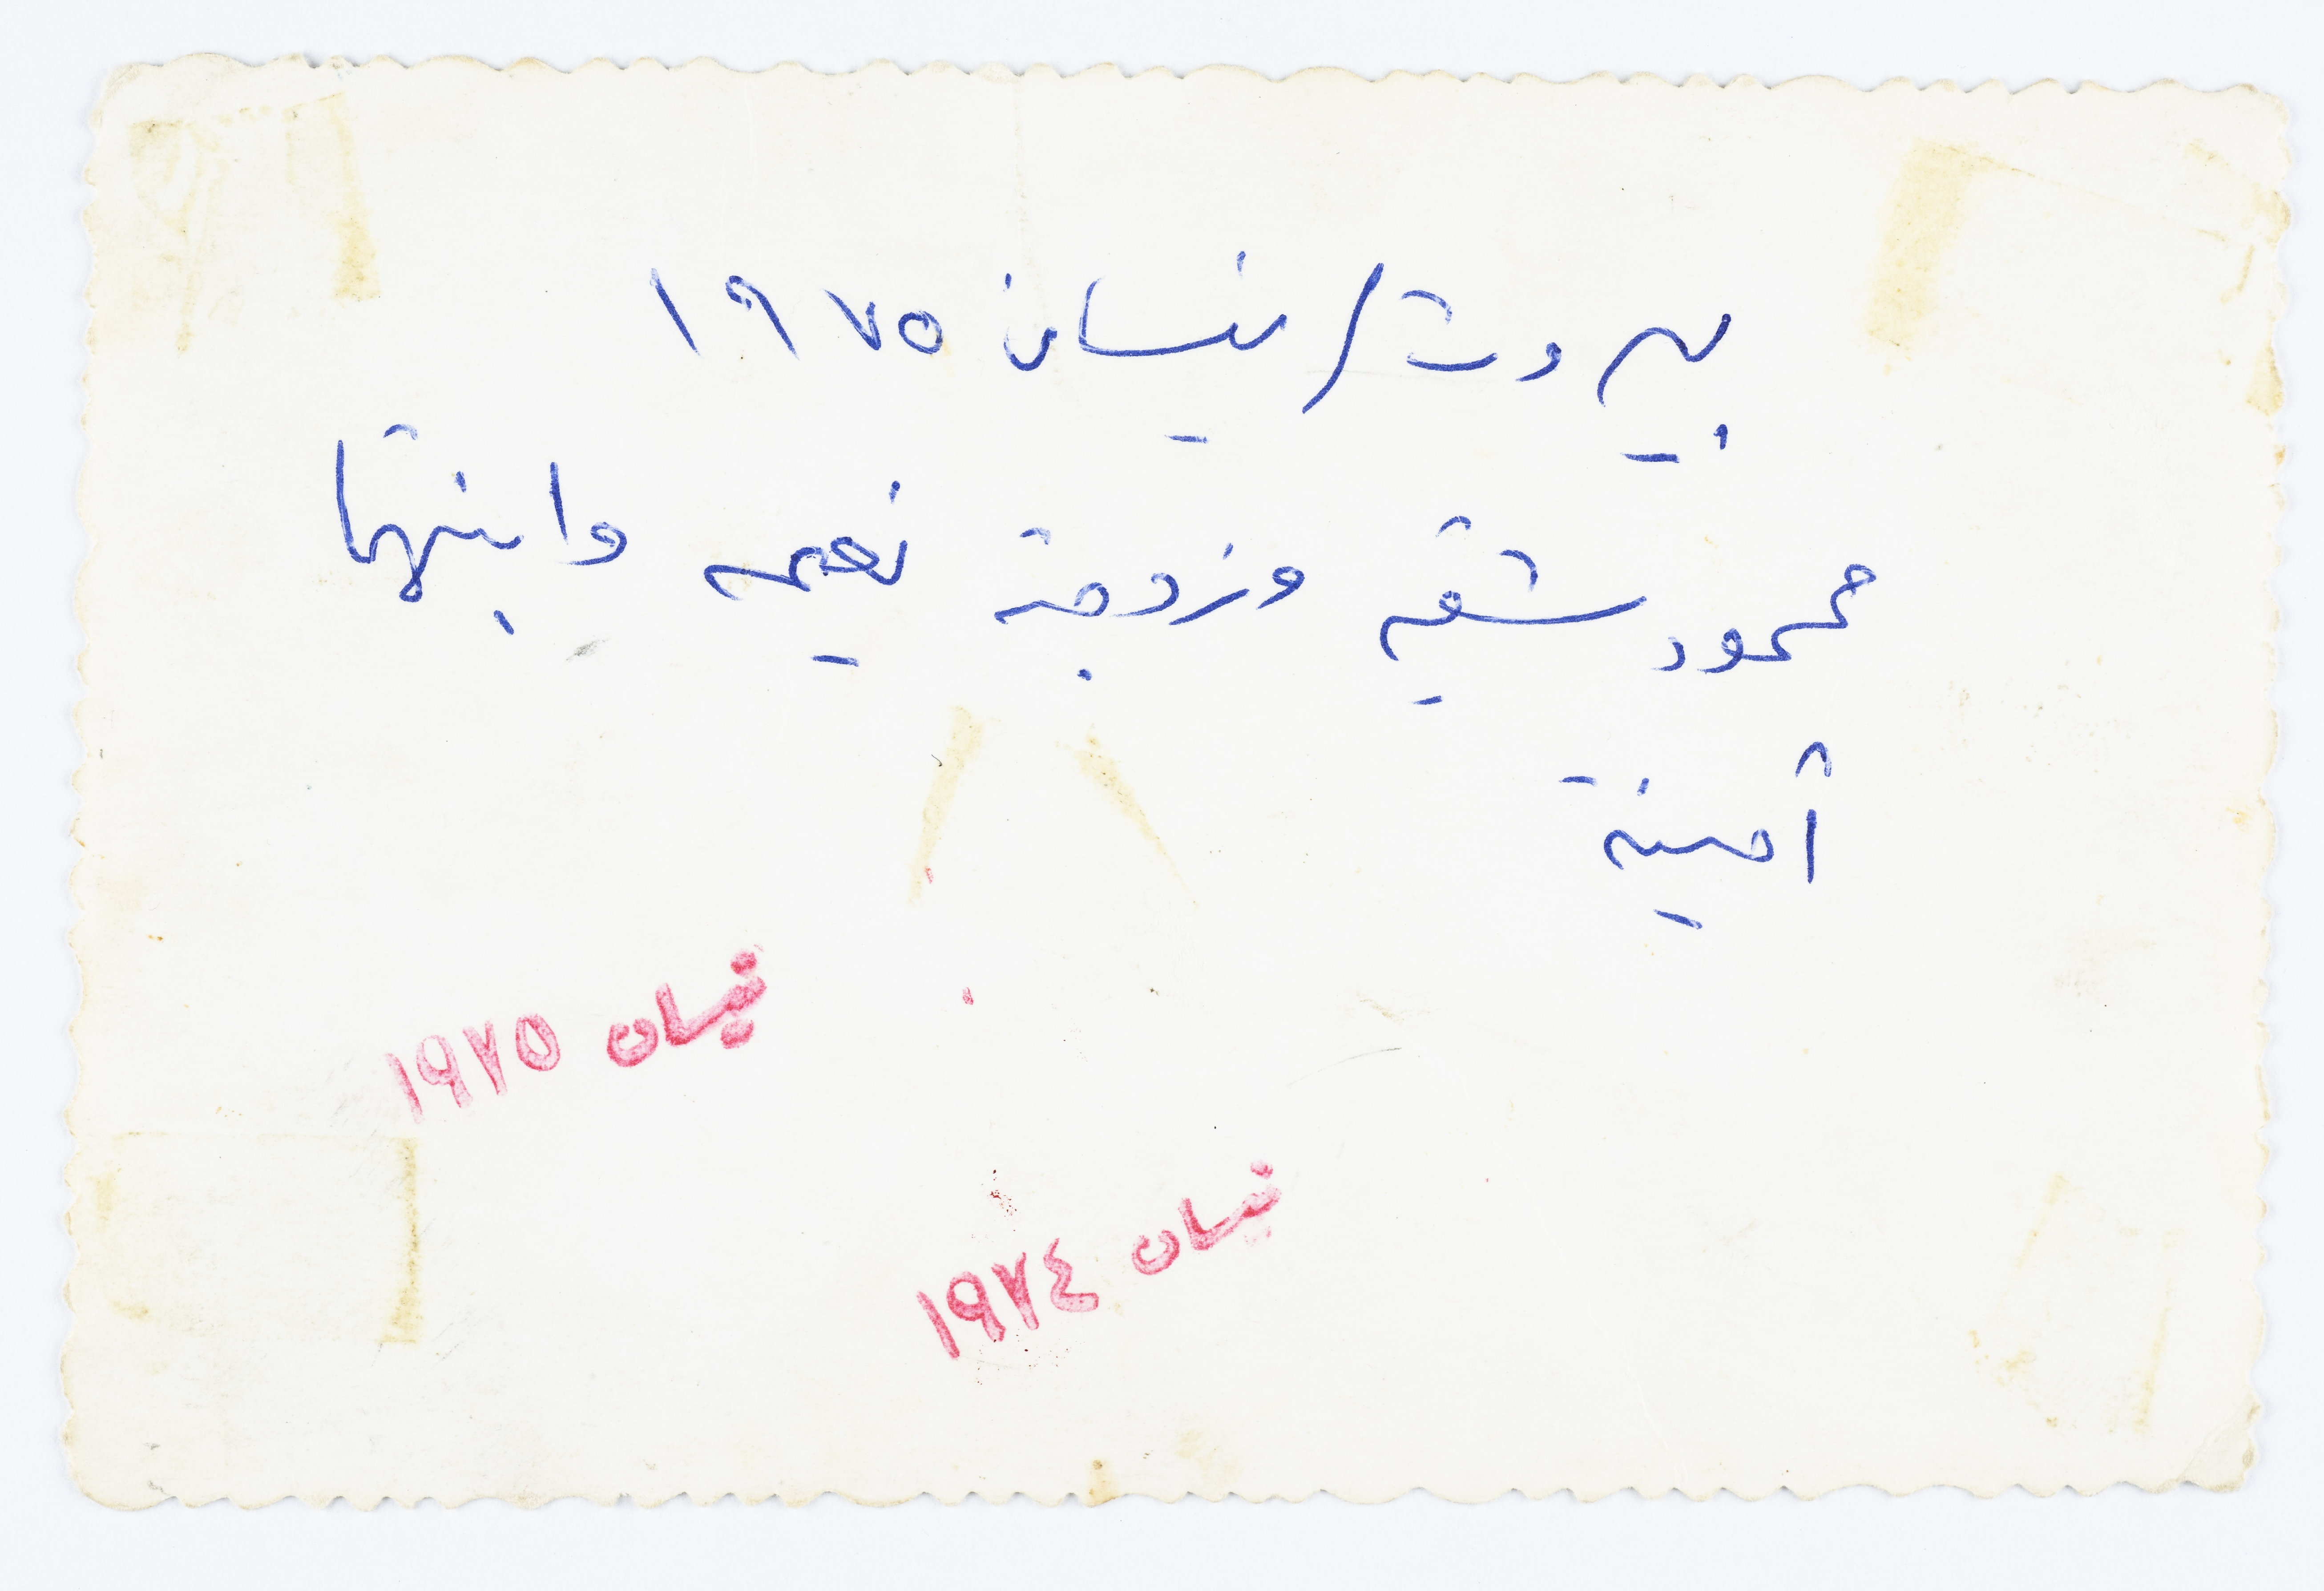 بيروت / نيسان ١٩٧٥
محمود شقير وزوجة نعيم وابنتها
أمينة
نيسان ١٩٧٥
نيسان ١٩٧٤